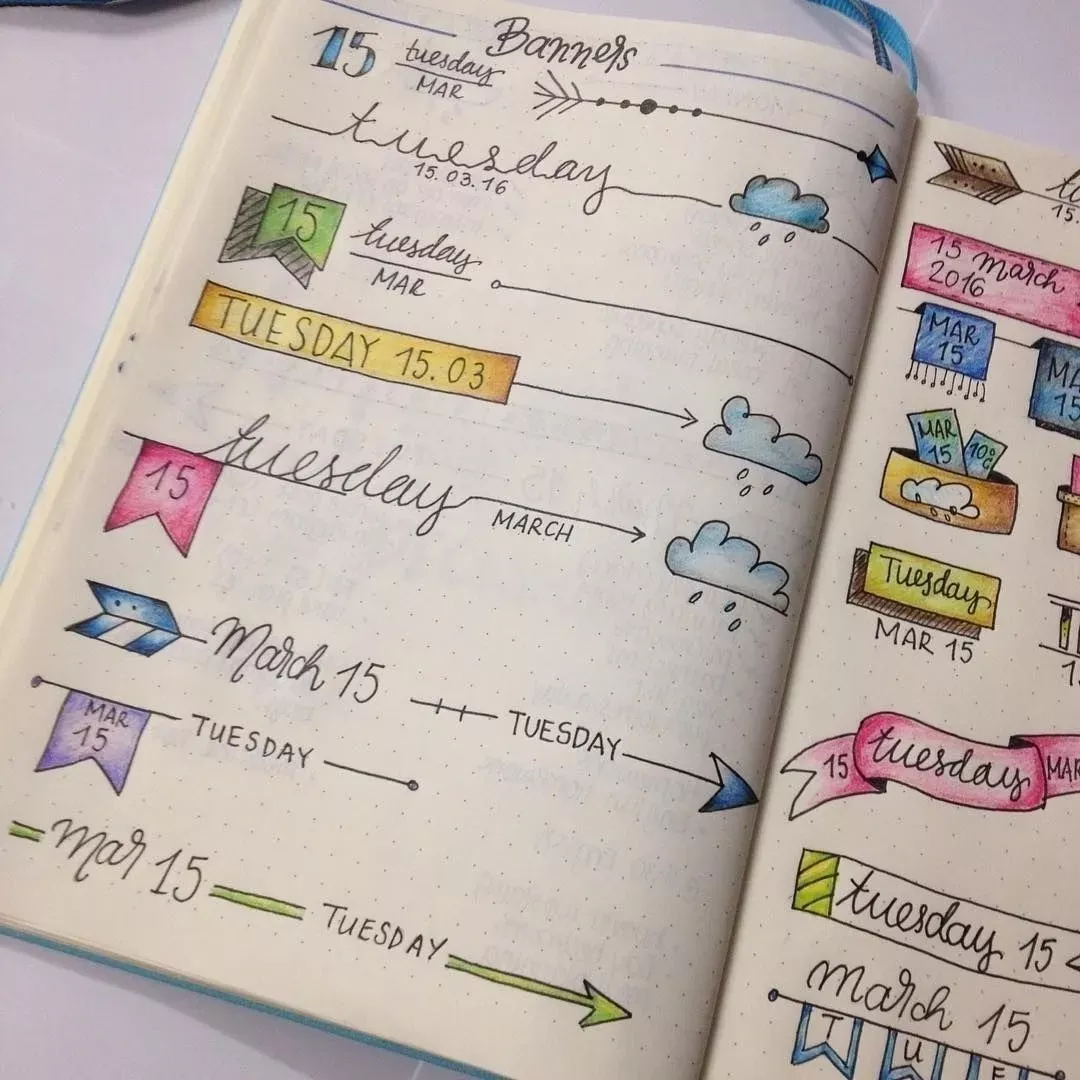 Banners
15 tuesday
MAR
tuesday
15.03.16
15 tuesday
MAR
TUESDAY 15.03
tuesday
15
MARCH
March 15
TUESDAY
MAR
15
TUESDAY
mar 15
TUESDAY
15.
15 march
2016
MAR
15
MA
15
MAR
15
10°C
Tuesday
MAR 15
15 tuesday MAR
tuesday 15
march 15
T U E